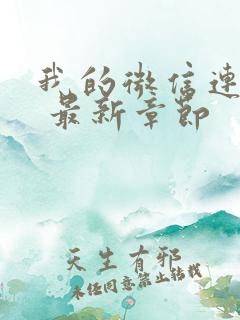 我的微信连
最新章节
天生有邪
未经同意禁止转载